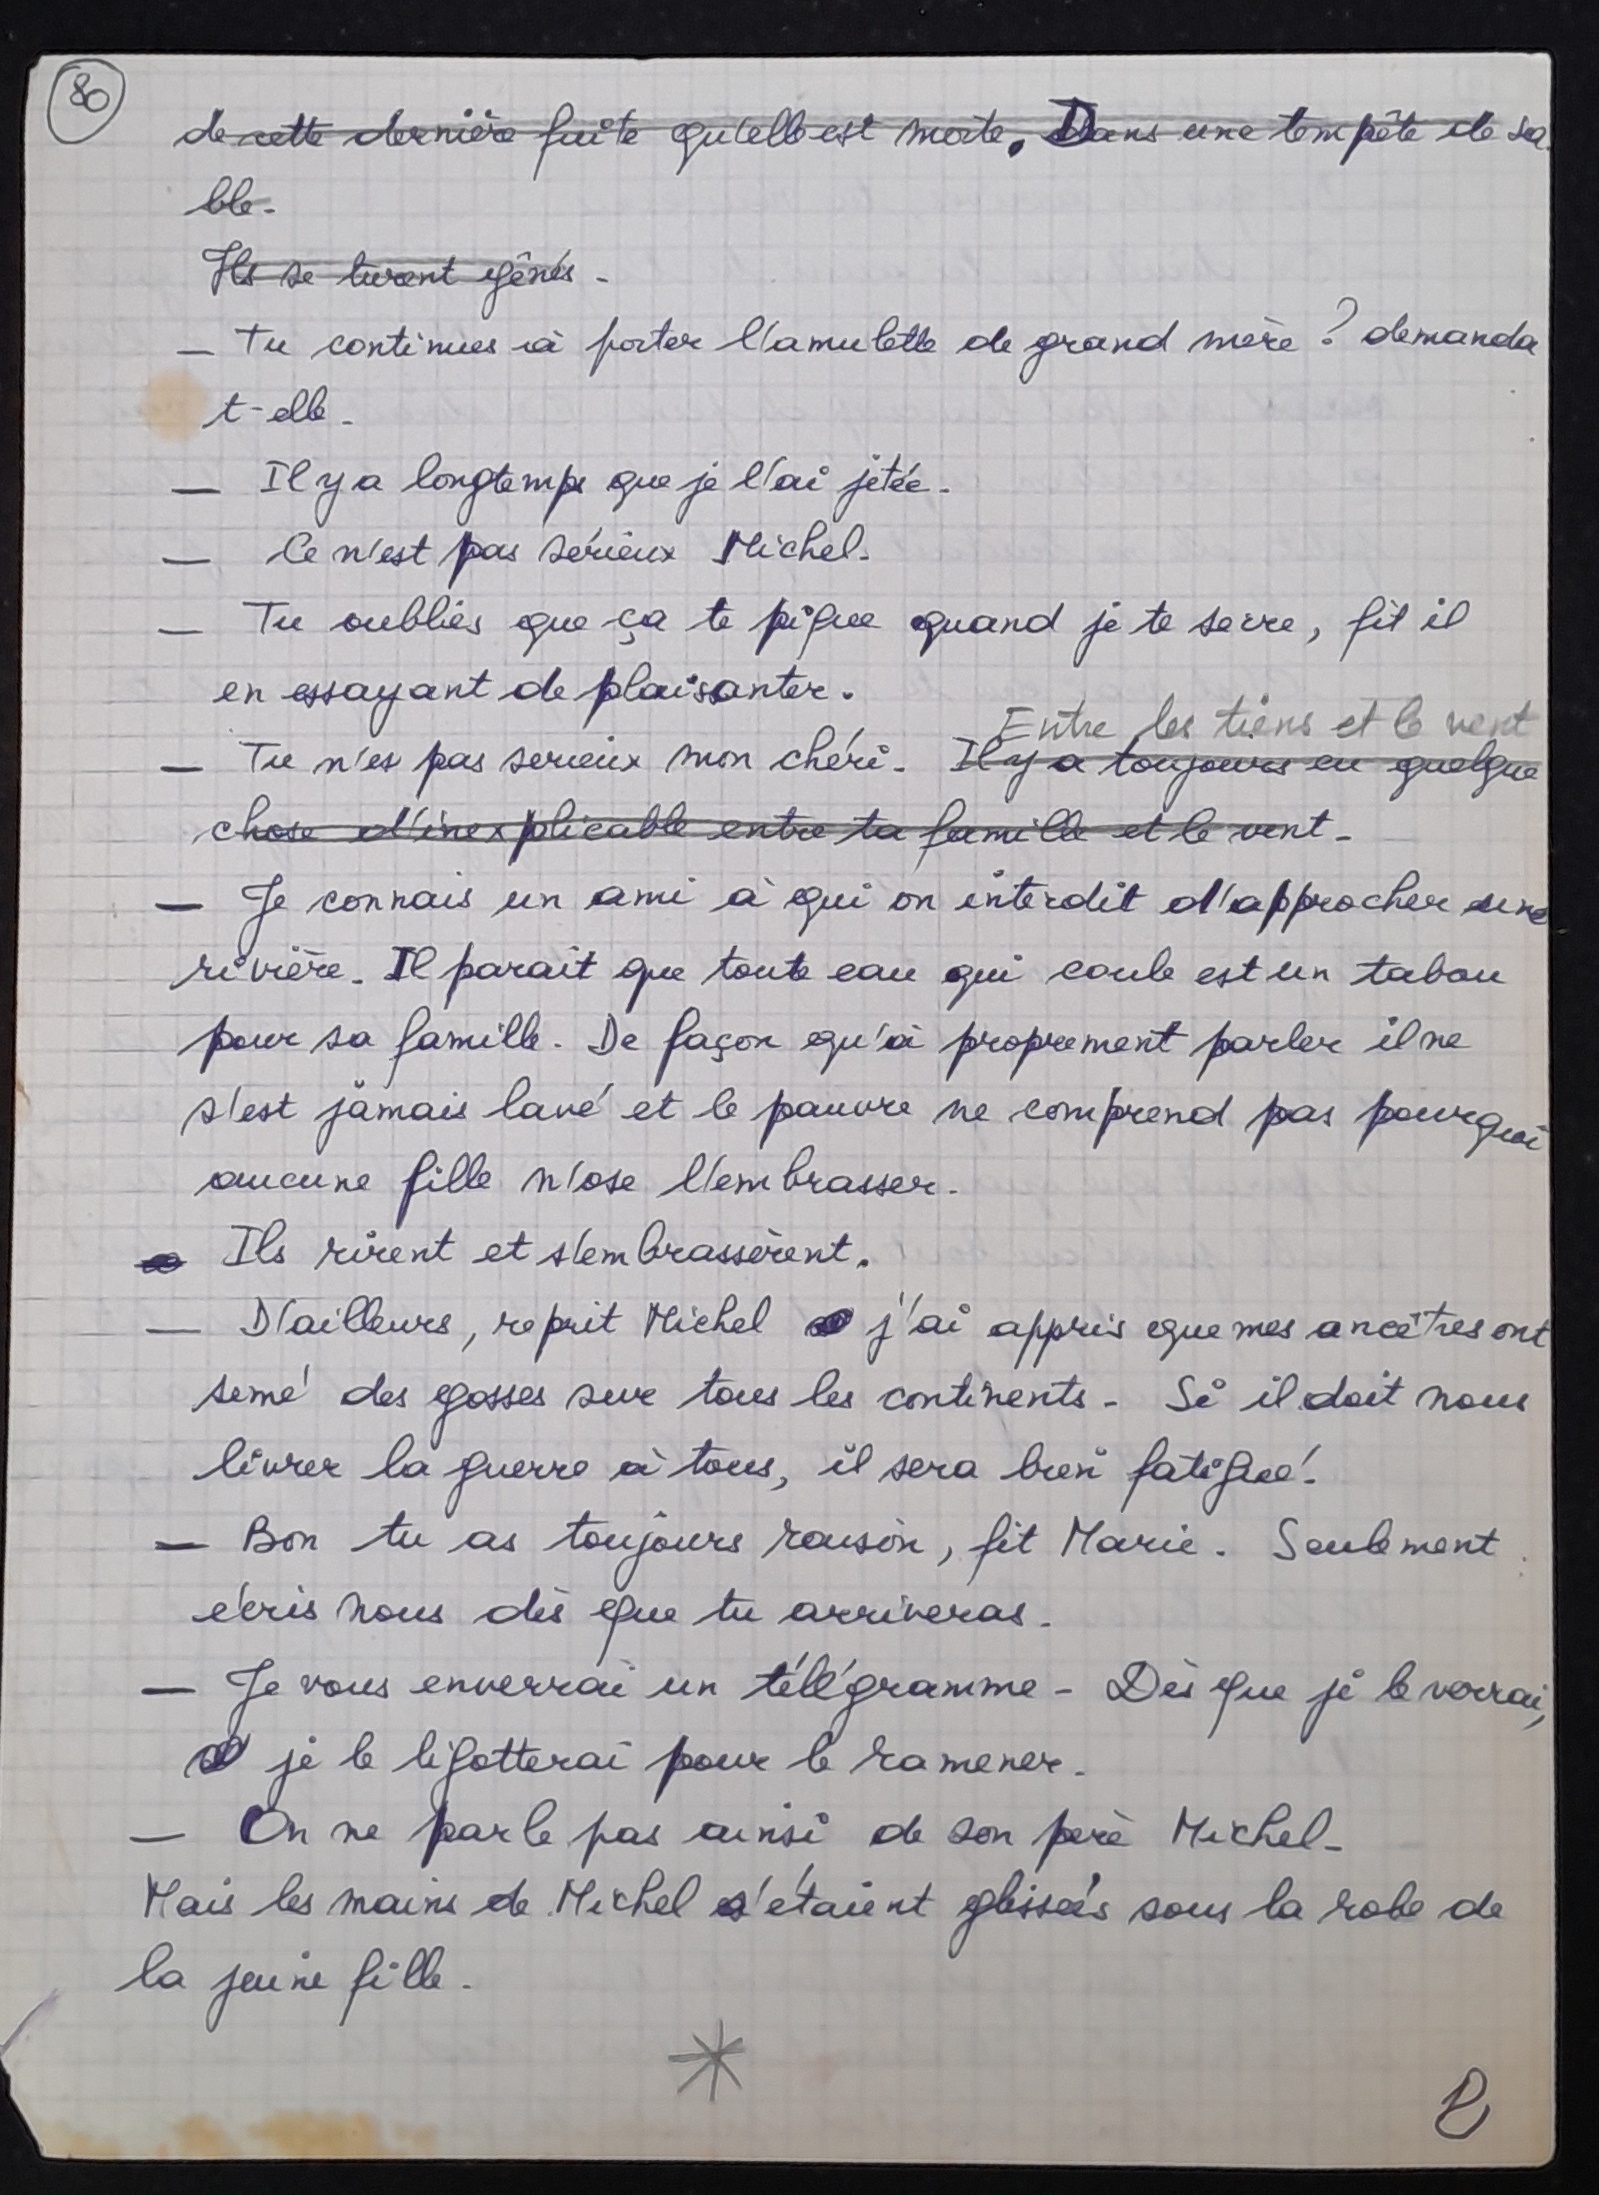 80
de cette dernière fuite qu'elle est morte. Dans une tempête de sa
ble.
Ils se turent gênés.
— Tu continues à porter l'amulette de grand mère ? demanda
t-elle.
— Il y a longtemps que je l'ai jetée.
— Ce n'est pas sérieux Michel.
— Tu oublies que ça te pique quand je te serre, fit il
en essayant de plaisanter.
Entre les tiens et le vent
— Tu n'es pas serieux mon chéri. Il y a toujours eu quelque
chose d'inexplicable entre ta famille et le vent.
— Je connais un ami à qui on interdit d'approcher une
rivière. Il parait que toute eau qui coule est un tabou
pour sa famille. De façon qu'à proprement parler il ne
s'est jamais lavé et le pauvre ne comprend pas pourquoi
aucune fille n'ose l'embrasser.
Ils rirent et s'embrassèrent.
— D'ailleurs, reprit Michel j'ai appris que mes ancêtres ont
semé des gosses sur tous les continents. Si il doit nous
livrer la guerre à tous, il sera bien fatigué.
— Bon tu as toujours raison, fit Marie. Seulement
écris nous dès que tu arriveras.
— Je vous enverrai un télégramme. Dès que je le verrai,
je le ligotterai pour le ramener.
— On ne parle pas ainsi de son père Michel.
Mais les mains de Michel s'étaient glissées sous la robe de
la jeune fille.
*